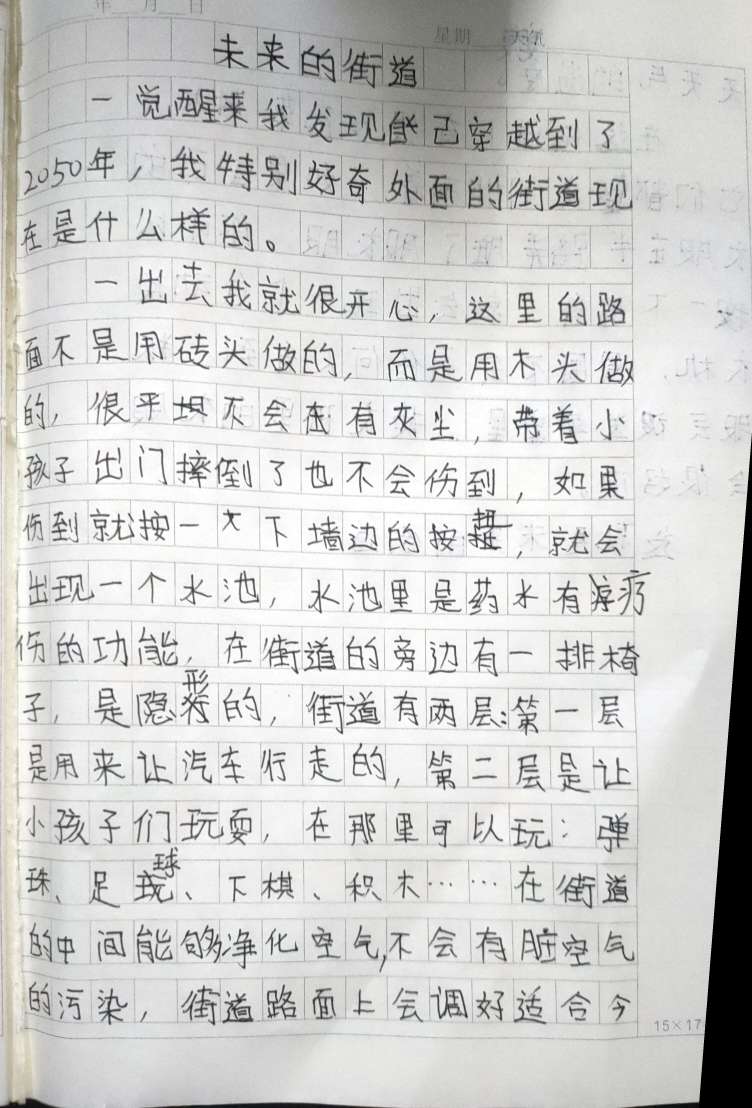 年 月 日
星期
未来的街道
一觉醒来我发现自己穿越到了
2050年，我特别好奇外面的街道现
在是什么样的。
一出去我就很开心，这里的路
面不是用砖头做的，而是用木头做
的，很平坦不会在有灰尘，带着小
孩子出门摔倒了也不会伤到，如果
伤到就按一下墙边的按钮，就会
出现一个水池，水池里是药水有疗
伤的功能，在街道的旁边有一排椅
子，是隐形的，街道有两层：第一层
是用来让汽车行走的，第二层是让
小孩子们玩耍，在那里可以玩：弹
珠、足球、下棋、积木……在街道
的中间能够净化空气，不会有脏空气
的污染，街道路面上会调好适合今
15×17